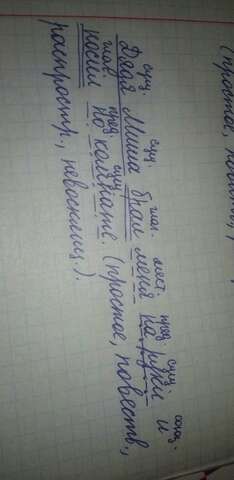 (простое, повеств.,
сущ. сущ. глаг. мест. пред. сущ. союз.
Дядя Миша брал меня на руки и
глаг. пред. сущ.
носил по комнате. (простое, повеств.,
распростр., невосклиц.).